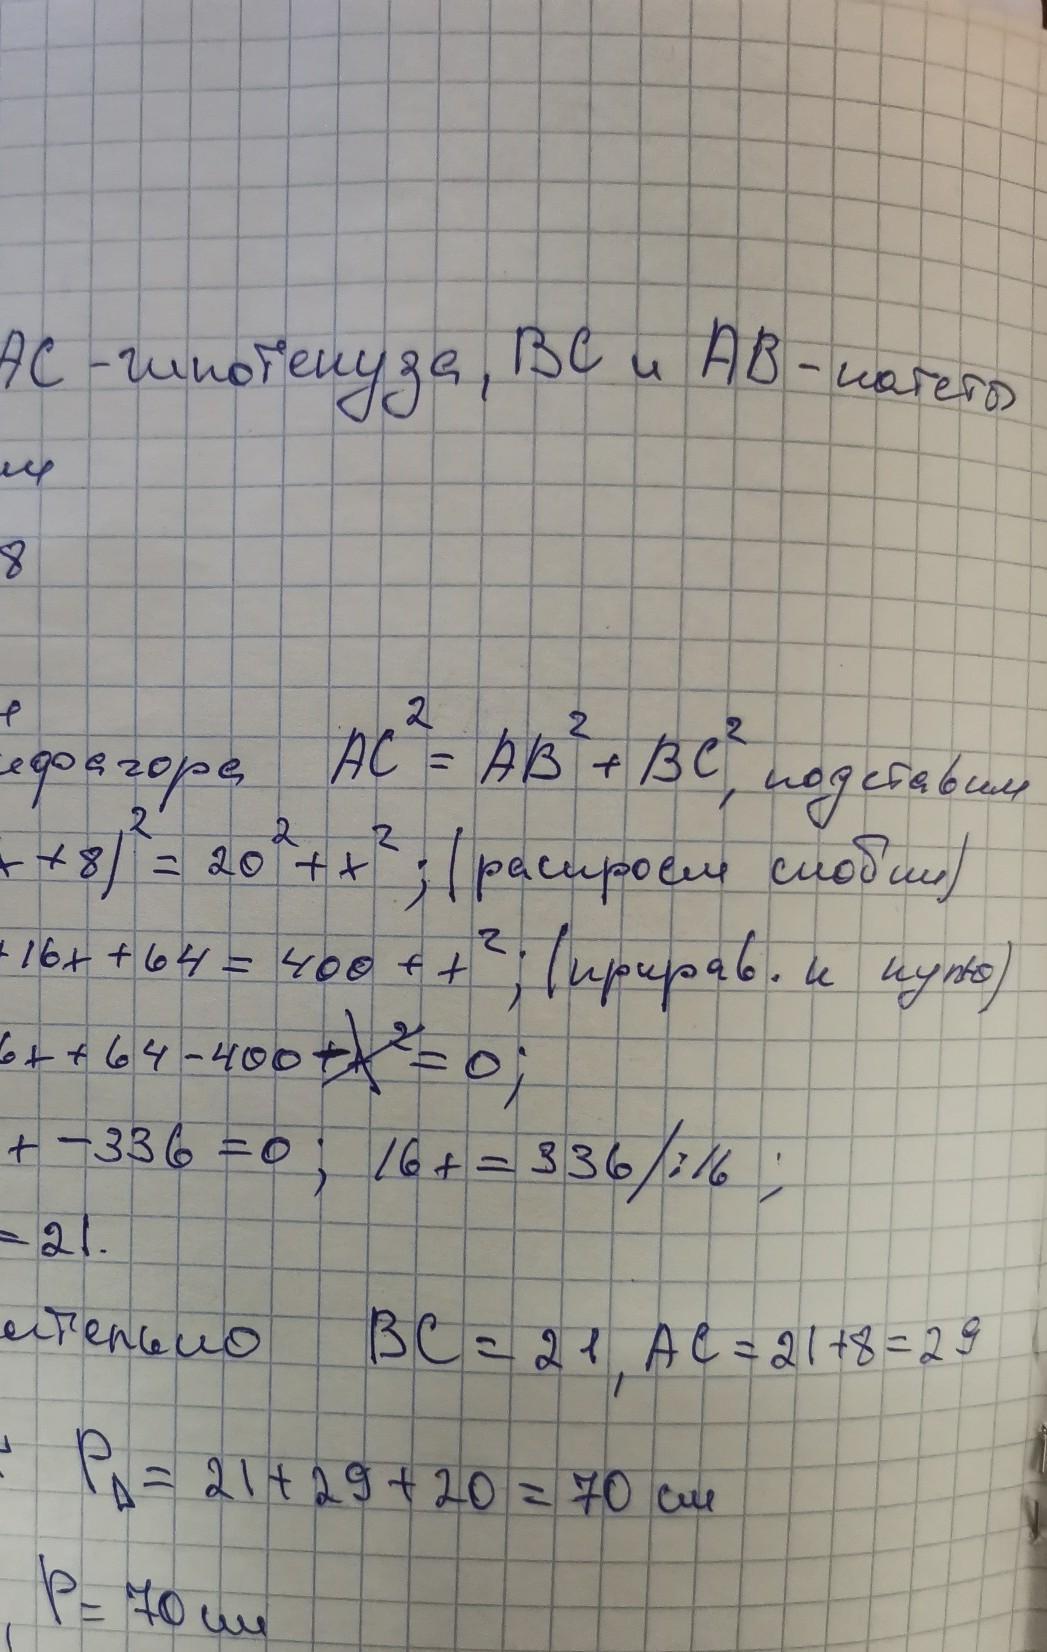 AC - гипотенуза, BC и AB - катеты
см
8
ифагора AC² = AB² + BC², подставим
x + 8)² = 20² + x²; (раскроем скобки)
+ 16x + 64 = 400 + x²; (прирав. к нулю)
6x + 64 - 400 + x² = 0;
x - 336 = 0; 16x = 336 /:16;
= 21.
ительно BC = 21, AC = 21 + 8 = 29
: P△ = 21 + 29 + 20 = 70 см
P = 70 см